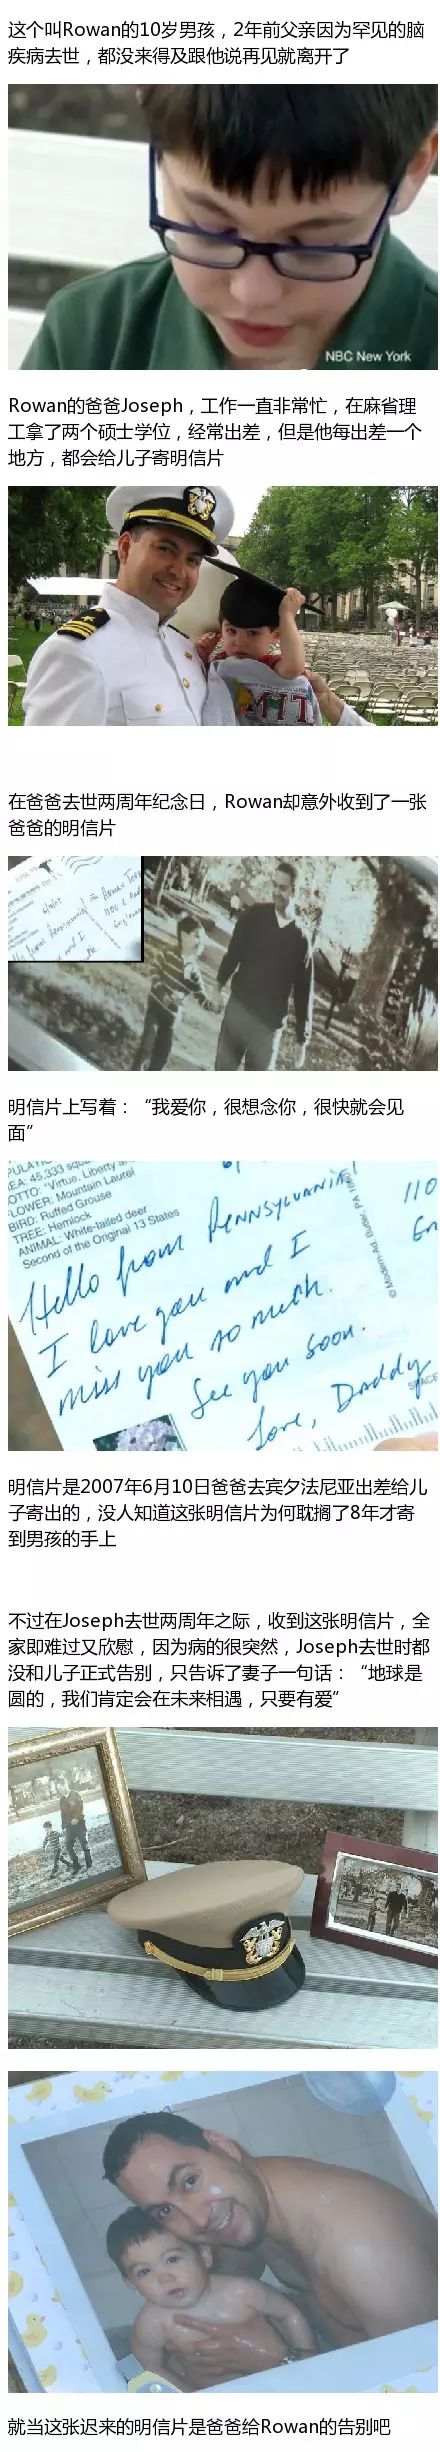 这个叫Rowan的10岁男孩，2年前父亲因为罕见的脑
疾病去世，都没来得及跟他说再见就离开了
NBC New York
Rowan的爸爸Joseph，工作一直非常忙，在麻省理
工拿了两个硕士学位，经常出差，但是他每出差一个
地方，都会给儿子寄明信片
MIT
在爸爸去世两周年纪念日，Rowan却意外收到了一张
爸爸的明信片
明信片上写着：“我爱你，很想念你，很快就会见
面”
EA: 45,333 squa
OTTO: "Virtue, Liberty an
LOWER: Mountain Laurel
BIRD: Ruffed Grouse
TREE: Hemlock
ANIMAL: White-tailed deer
Second of the Original 13 States
© Modern-Ad, Butler, PA
110
Hello from Pennsylvania!
I love you and I
miss you so much.
See you soon.
Love, Daddy
SPACE
明信片是2007年6月10日爸爸去宾夕法尼亚出差给儿
子寄出的，没人知道这张明信片为何耽搁了8年才寄
到男孩的手上
不过在Joseph去世两周年之际，收到这张明信片，全
家即难过又欣慰，因为病的很突然，Joseph去世时都
没和儿子正式告别，只告诉了妻子一句话：“地球是
圆的，我们肯定会在未来相遇，只要有爱”
就当这张迟来的明信片是爸爸给Rowan的告别吧